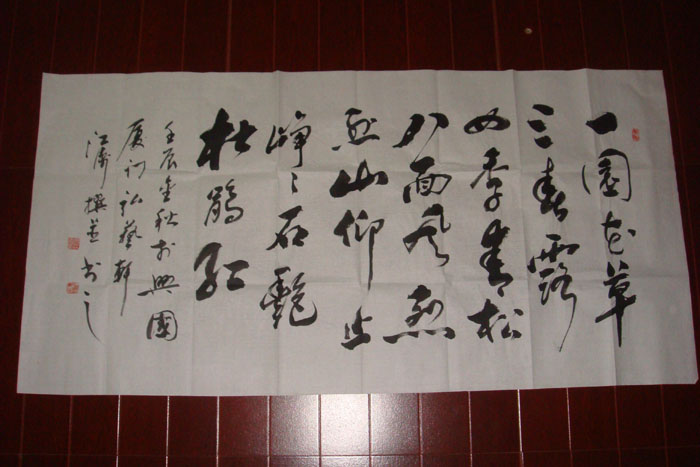 一園花草
三春露
四季青松
八面風烈
山仰止
崢々石艷
杜鵑紅
壬辰金秋於興國
廈門弘藝軒
江濤撰並書之